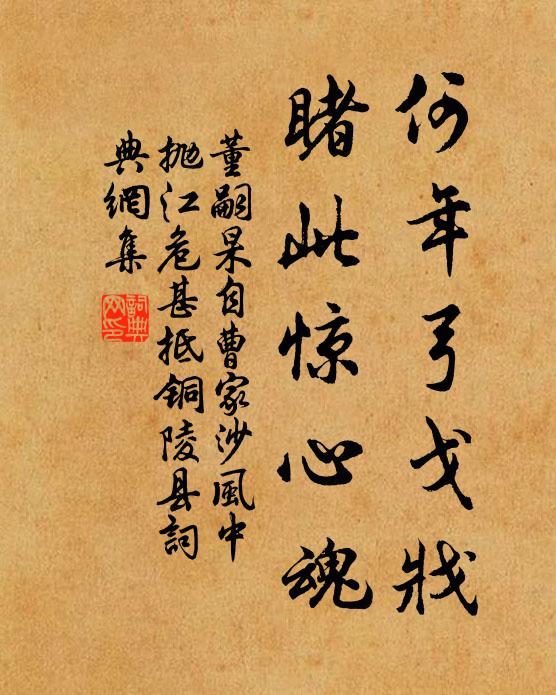 何年弓戈戕
睹此惊心魂
董嗣杲自曹家沙風中
抛江危甚抵铜陵县詞
典網集
詞典网印